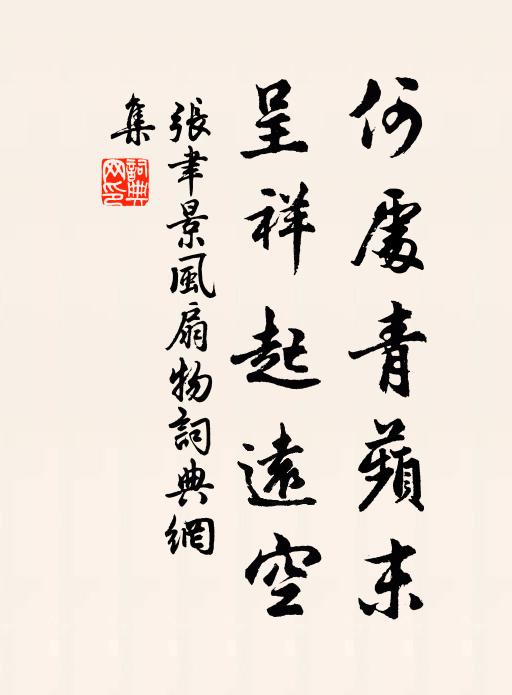 何處青蘋末
呈祥起遠空
張聿景風扇物詞典網
集
詞典
網印